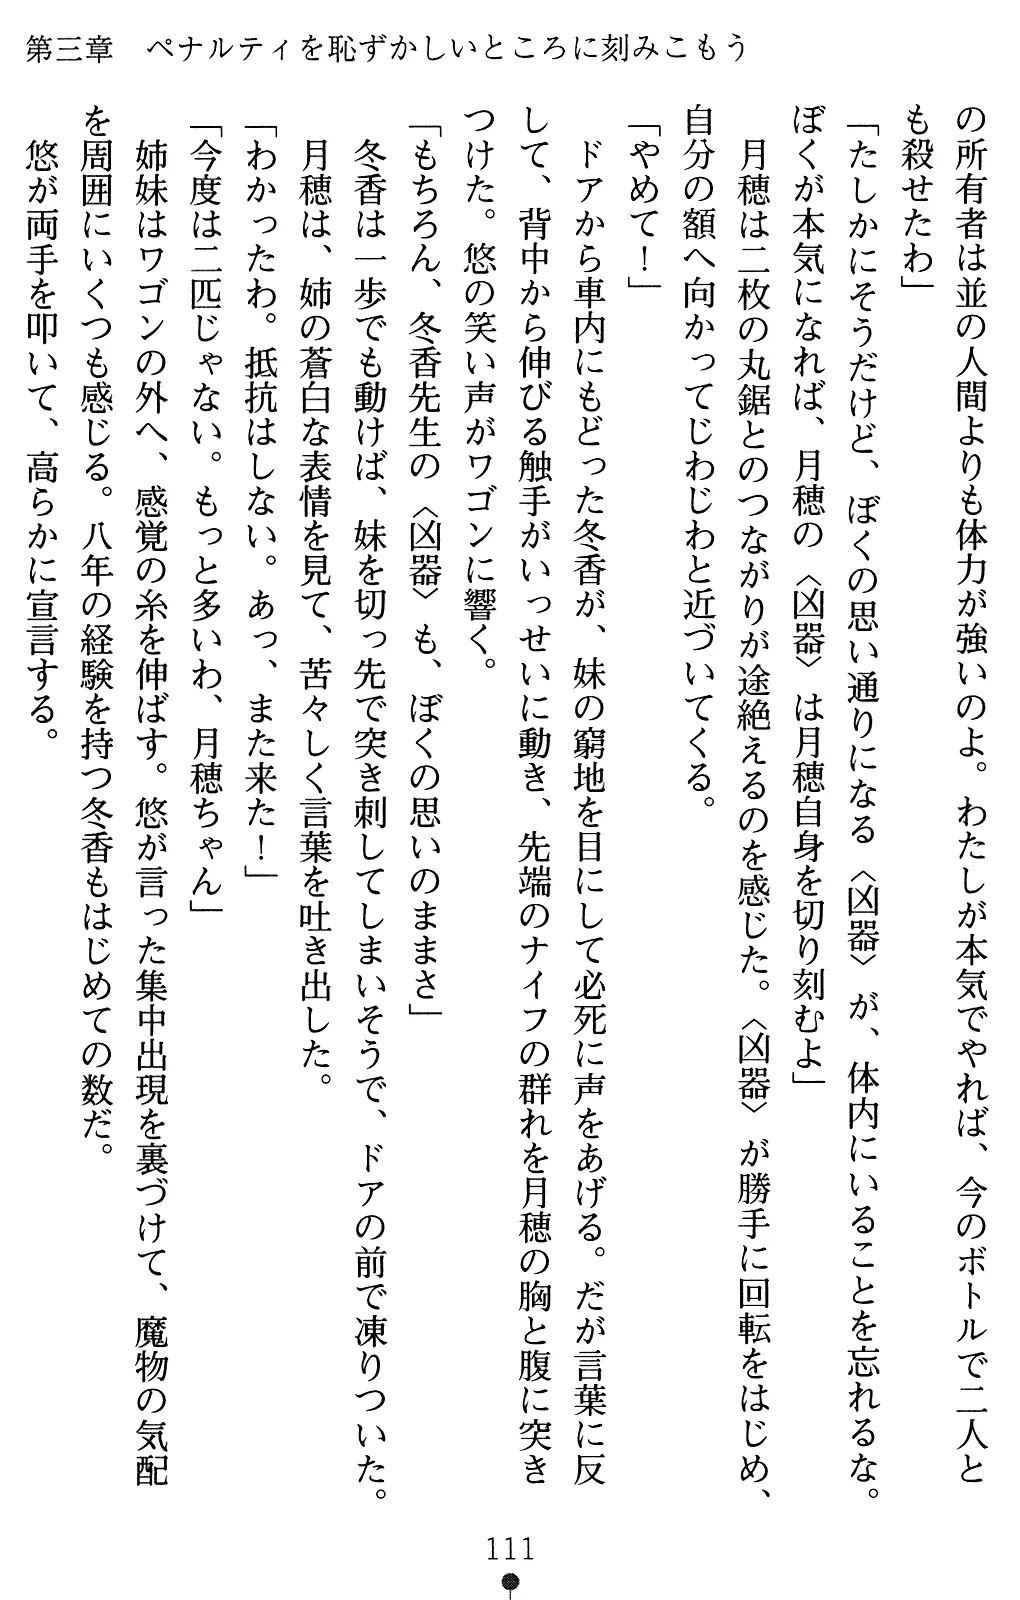 第三章　ペナルティを恥ずかしいところに刻みこもう
の所有者は並の人間よりも体力が強いのよ。わたしが本気でやれば、今のボトルで二人と
も殺せたわ」
「たしかにそうだけど、ぼくの思い通りになる〈凶器〉が、体内にいることを忘れるな。
ぼくが本気になれば、月穂の〈凶器〉は月穂自身を切り刻むよ」
　月穂は二枚の丸鋸とのつながりが途絶えるのを感じた。〈凶器〉が勝手に回転をはじめ、
自分の額へ向かってじわじわと近づいてくる。
「やめて！」
　ドアから車内にもどった冬香が、妹の窮地を目にして必死に声をあげる。だが言葉に反
して、背中から伸びる触手がいっせいに動き、先端のナイフの群れを月穂の胸と腹に突き
つけた。悠の笑い声がワゴンに響く。
「もちろん、冬香先生の〈凶器〉も、ぼくの思いのままさ」
　冬香は一歩でも動けば、妹を切っ先で突き刺してしまいそうで、ドアの前で凍りついた。
　月穂は、姉の蒼白な表情を見て、苦々しく言葉を吐き出した。
「わかったわ。抵抗はしない。あっ、また来た！」
「今度は二匹じゃない。もっと多いわ、月穂ちゃん」
　姉妹はワゴンの外へ、感覚の糸を伸ばす。悠が言った集中出現を裏づけて、魔物の気配
を周囲にいくつも感じる。八年の経験を持つ冬香もはじめての数だ。
　悠が両手を叩いて、高らかに宣言する。
111